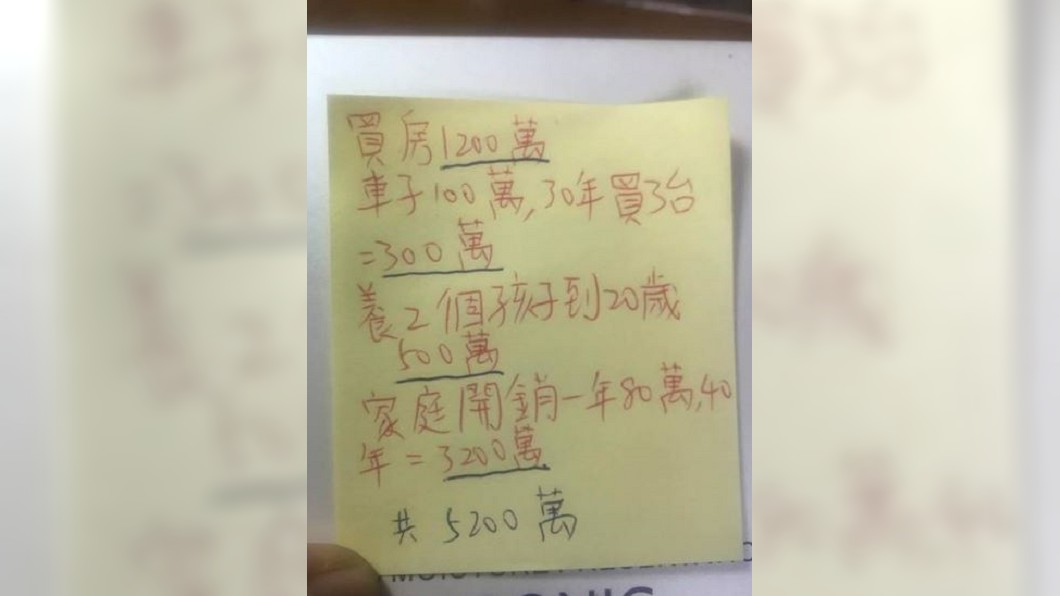 買房1200萬
車子100萬,30年買3台
=300萬
養2個孩子到20歲
500萬
家庭開銷一年80萬,40
年=3200萬
共5200萬